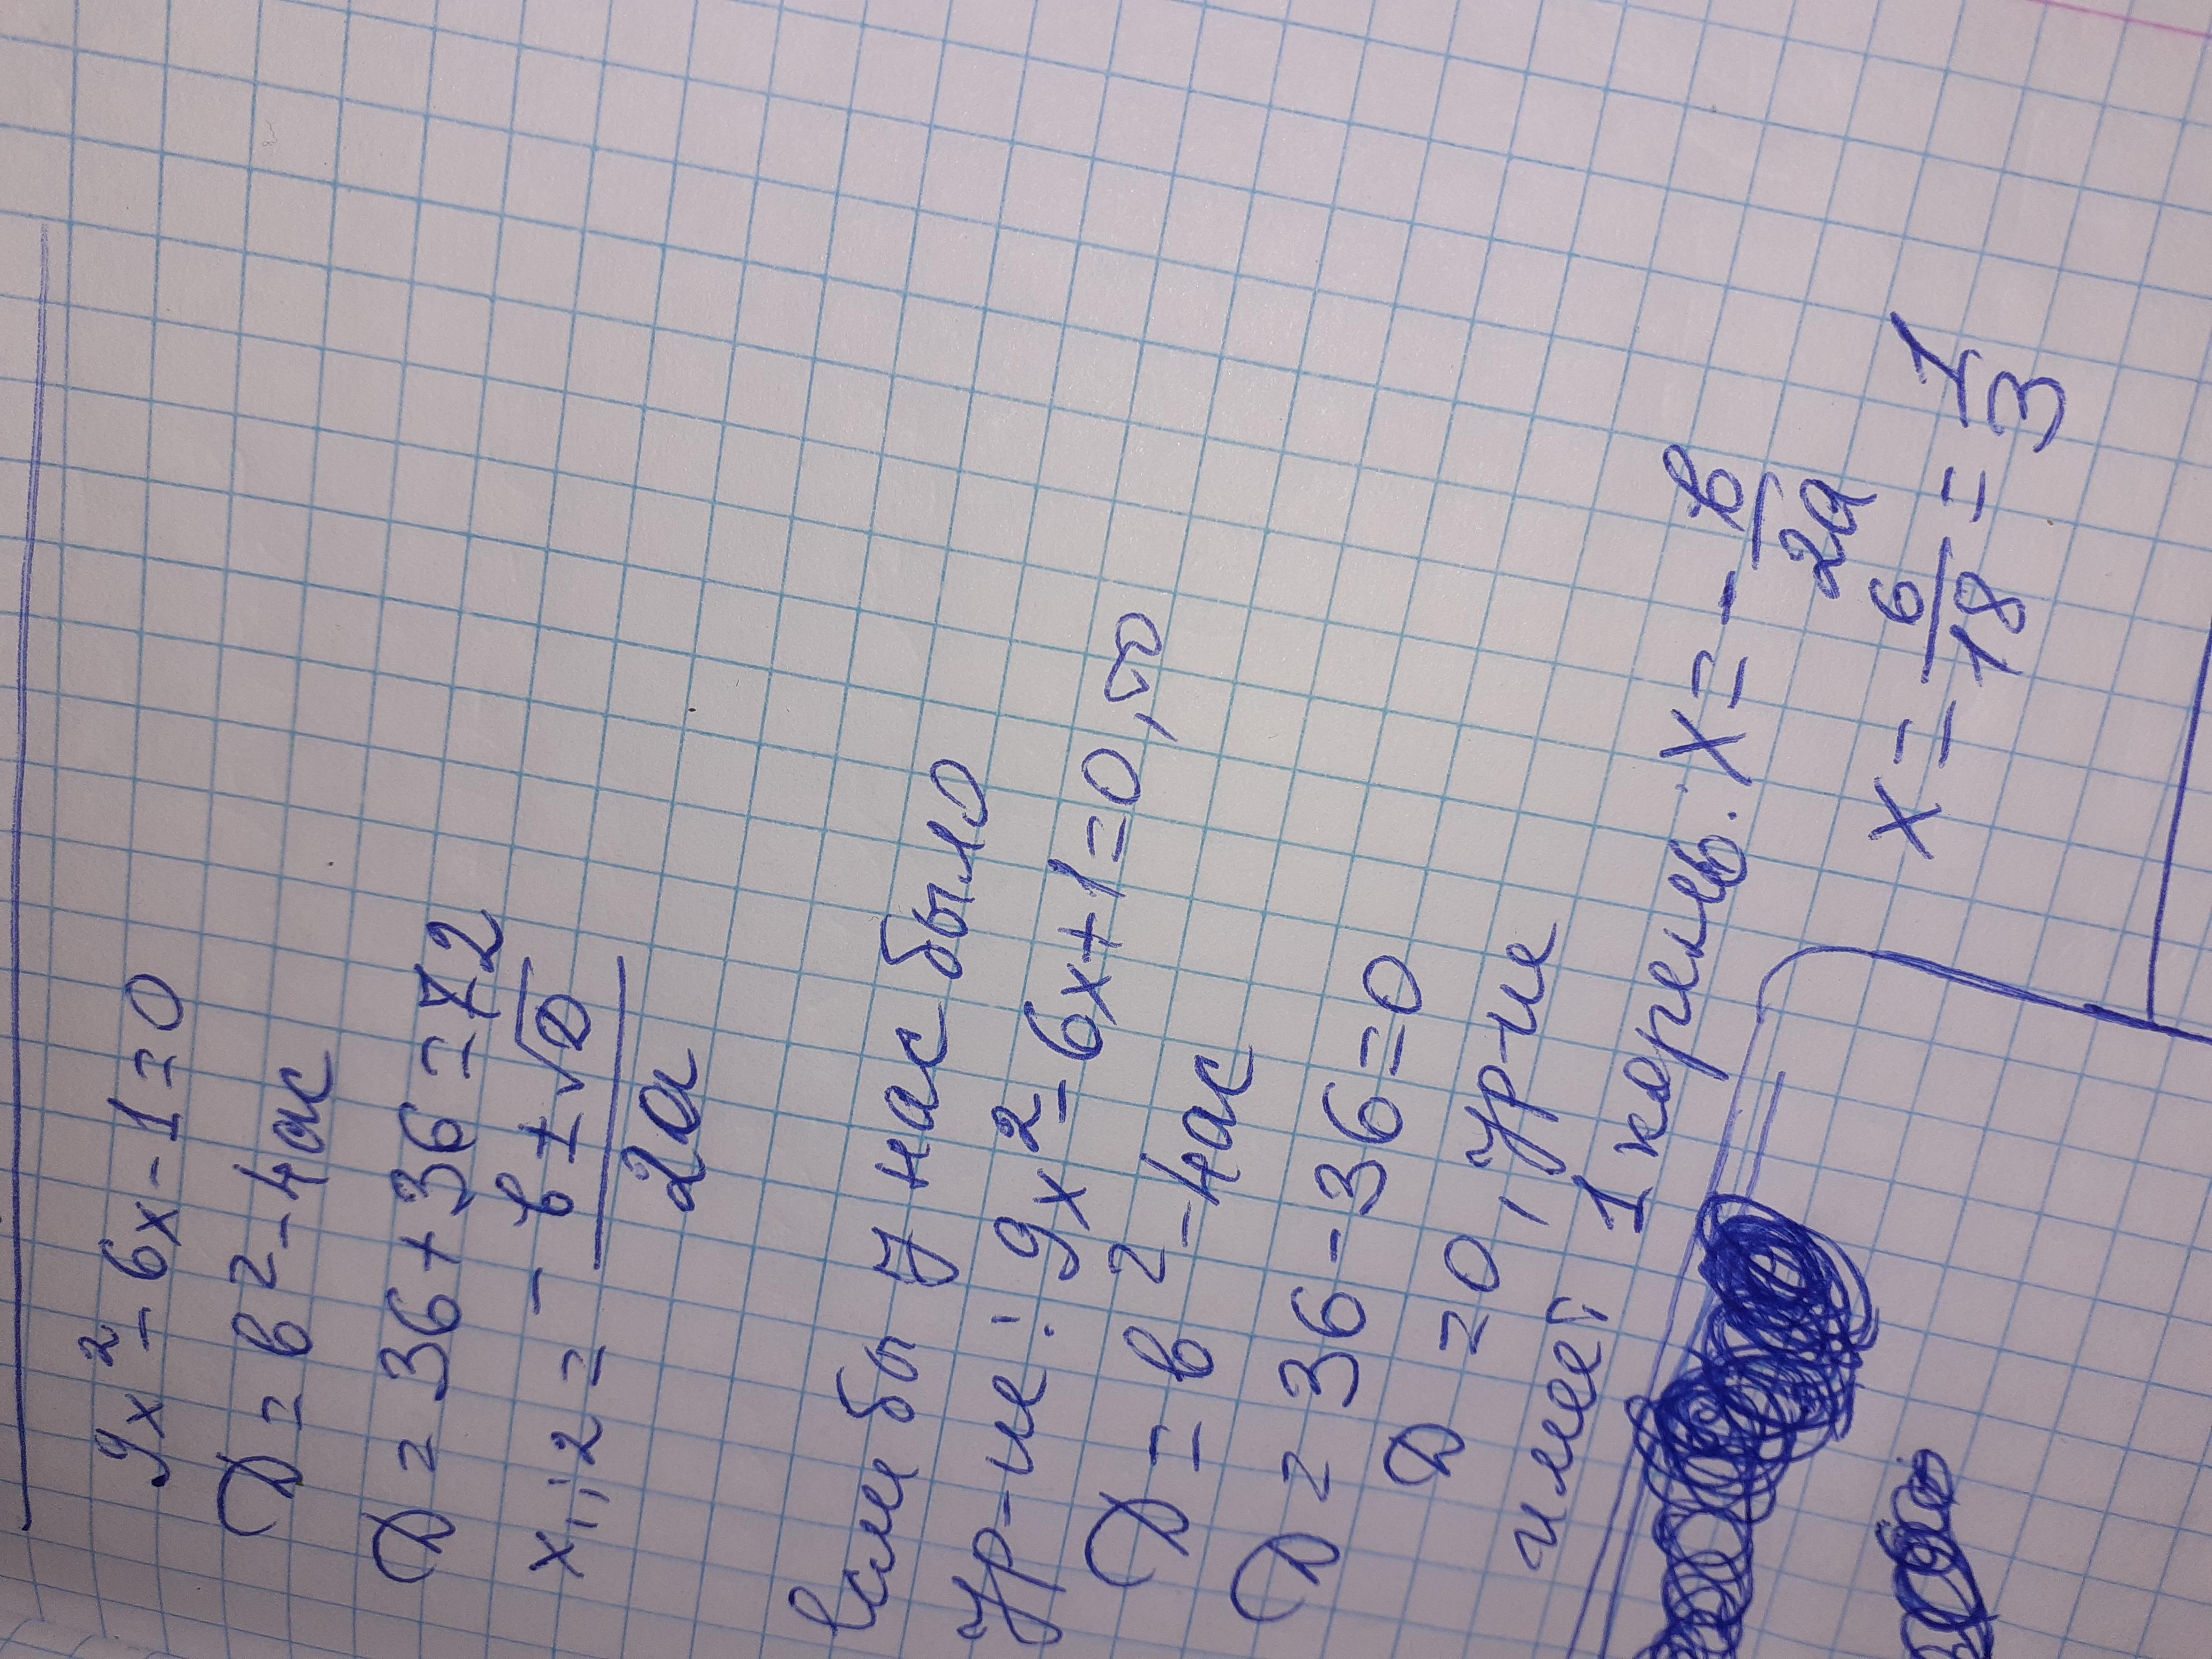 9x² - 6x - 1 = 0
D = в² - 4ac
D = 36 + 36 = 72
x₁;₂ = -в ± √D / 2a
Если бы у нас было
ур-ие: 9x² - 6x + 1 = 0, то
D = в² - 4ac
D = 36 - 36 = 0
D = 0, ур-ие
имеет 1 корень: x = - в/2a
x = 6/18 = 1/3